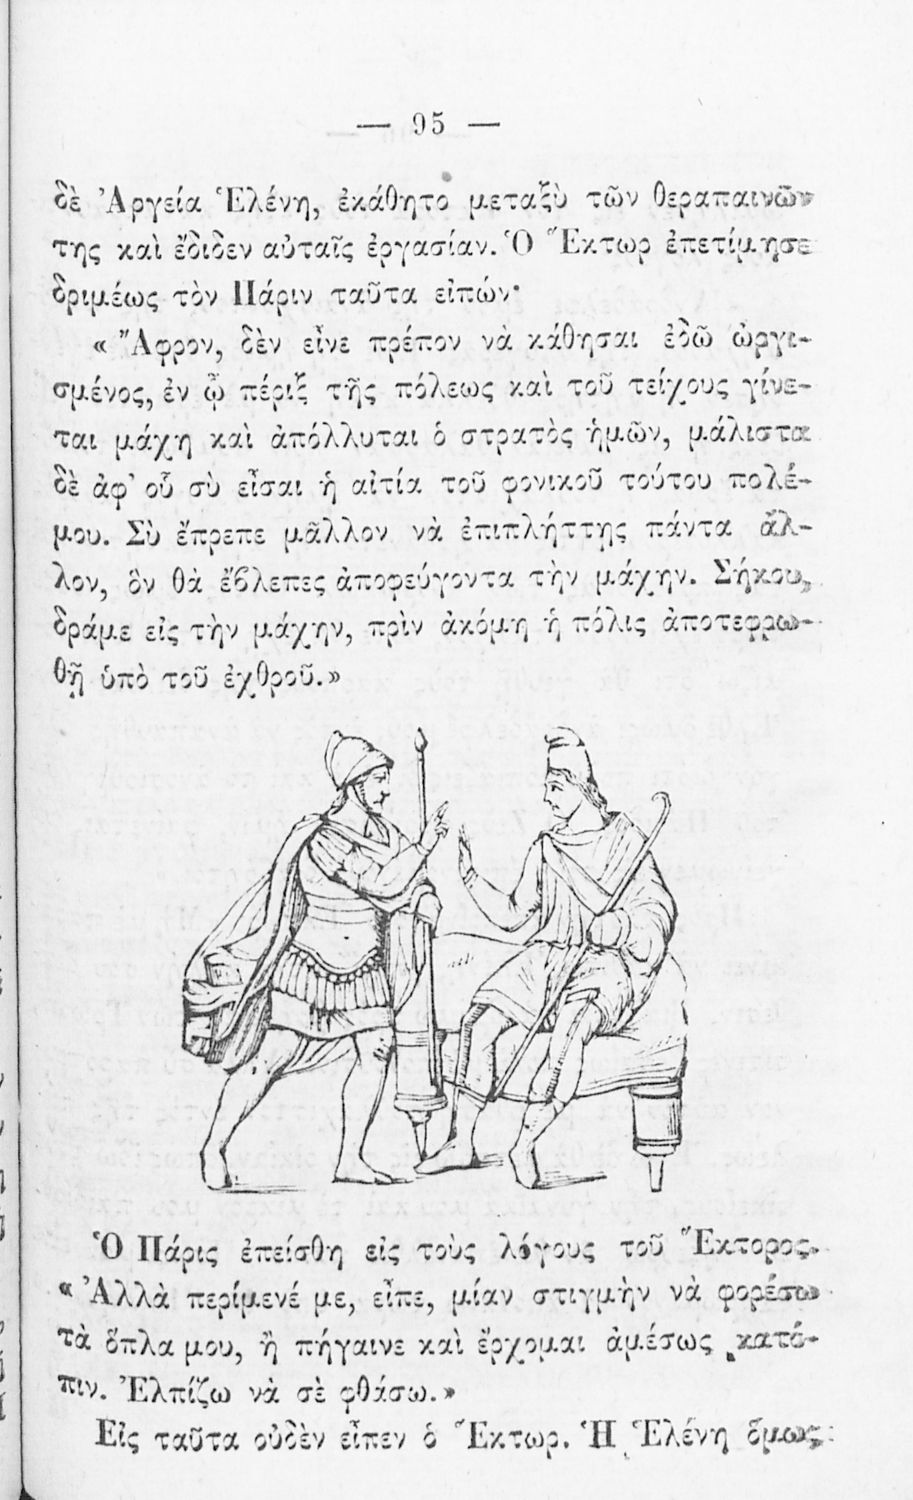 — 95 —
δὲ Ἀργεία Ἑλένη, ἐκάθητο μεταξὺ τῶν θεραπαινῶν
της καὶ ἔδιδεν αὐταῖς ἐργασίαν. Ὁ Ἕκτωρ ἐπετίμησε
δριμέως τὸν Πάριν ταῦτα εἰπών·
« Ἄφρον, δὲν εἶνε πρέπον νὰ κάθησαι ἐδῶ ὠργι-
σμένος, ἐν ᾧ πέριξ τῆς πόλεως καὶ τοῦ τείχους γίνε-
ται μάχη καὶ ἀπόλλυται ὁ στρατὸς ἡμῶν, μάλιστα
δὲ ἀφ' οὗ σὺ εἶσαι ἡ αἰτία τοῦ φονικοῦ τούτου πολέ-
μου. Σὺ ἔπρεπε μᾶλλον νὰ ἐπιπλήττῃς πάντα ἄλ-
λον, ὃν θὰ ἔβλεπες ἀποφεύγοντα τὴν μάχην. Σήκου,
δράμε εἰς τὴν μάχην, πρὶν ἀκόμη ἡ πόλις ἀποτεφρω-
θῇ ὑπὸ τοῦ ἐχθροῦ.»
Ὁ Πάρις ἐπείσθη εἰς τοὺς λόγους τοῦ Ἕκτορος.
« Ἀλλὰ περίμενέ με, εἶπε, μίαν στιγμὴν νὰ φορέσω
τὰ ὅπλα μου, ἢ πήγαινε καὶ ἔρχομαι ἀμέσως κατό-
πιν. Ἐλπίζω νὰ σὲ φθάσω.»
Εἰς ταῦτα οὐδὲν εἶπεν ὁ Ἕκτωρ. Ἡ Ἑλένη ὅμως